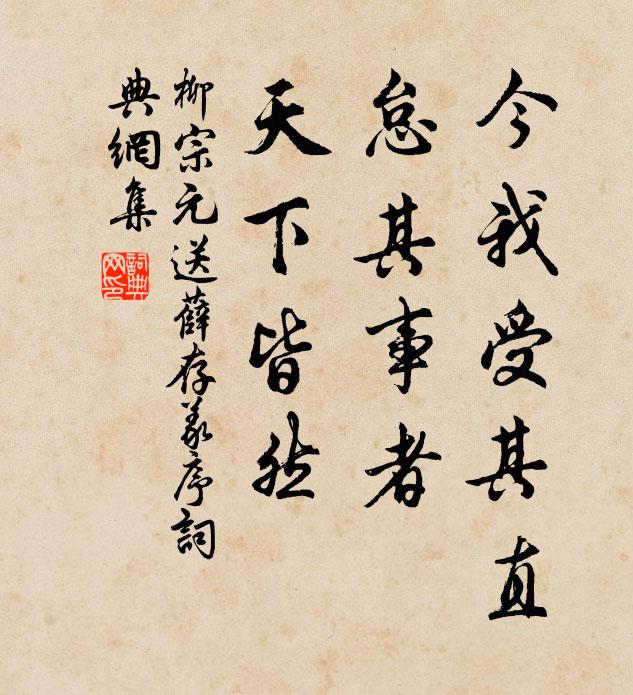 今我受其直
怠其事者
天下皆然
柳宗元送薛存义序詞
典網集
詞典
网印